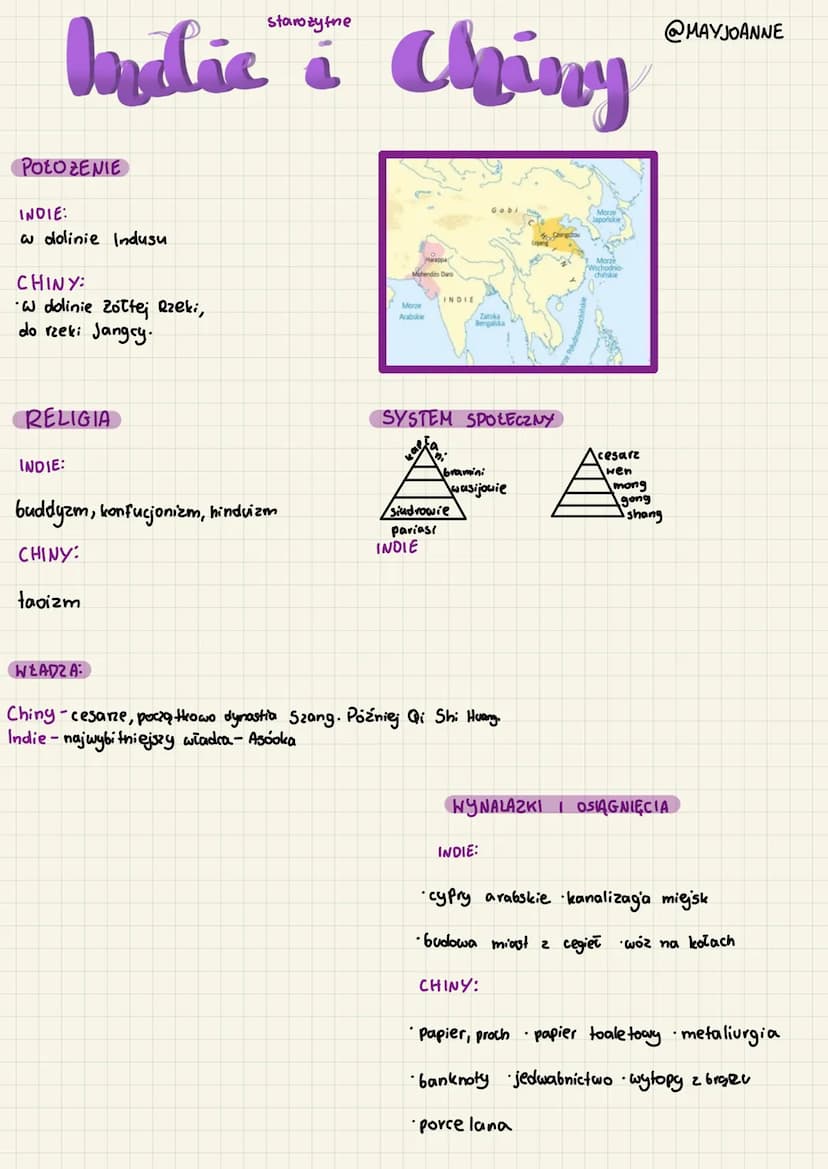 starożytne
Indie i Chiny
@MAYJOANNE
POŁOŻENIE
INDIE:
w dolinie Indusu
CHINY:
·W dolinie Żółtej Rzeki,
do rzeki Jangcy.
Gobi
CHINY
Czengczou
Lojang
Harappa
Mohendżo Daro
INDIE
Morze
Arabskie
Zatoka
Bengalska
Morze
Japońskie
Morze
Wschodnio-
chińskie
Morze Południowochińskie
RELIGIA
INDIE:
buddyzm, konfucjonizm, hinduizm
CHINY:
taoizm
SYSTEM SPOŁECZNY
kapłani
bramini
wasijowie
siudrowie
pariasi
INDIE
cesarz
wen
mong
gong
shang
WŁADZA:
Chiny - cesarze, początkowo dynastia Szang. Później Qi Shi Huang.
Indie - najwybitniejszy władca - Asóoka
WYNALAZKI I OSIĄGNIĘCIA
INDIE:
·cyfry arabskie ·kanalizacja miejsk
·budowa miast z cegieł ·wóz na kołach
CHINY:
·papier, proch ·papier toaletowy ·metaliurgia
·banknoty ·jedwabnictwo ·wytopy z brązu
·porcelana